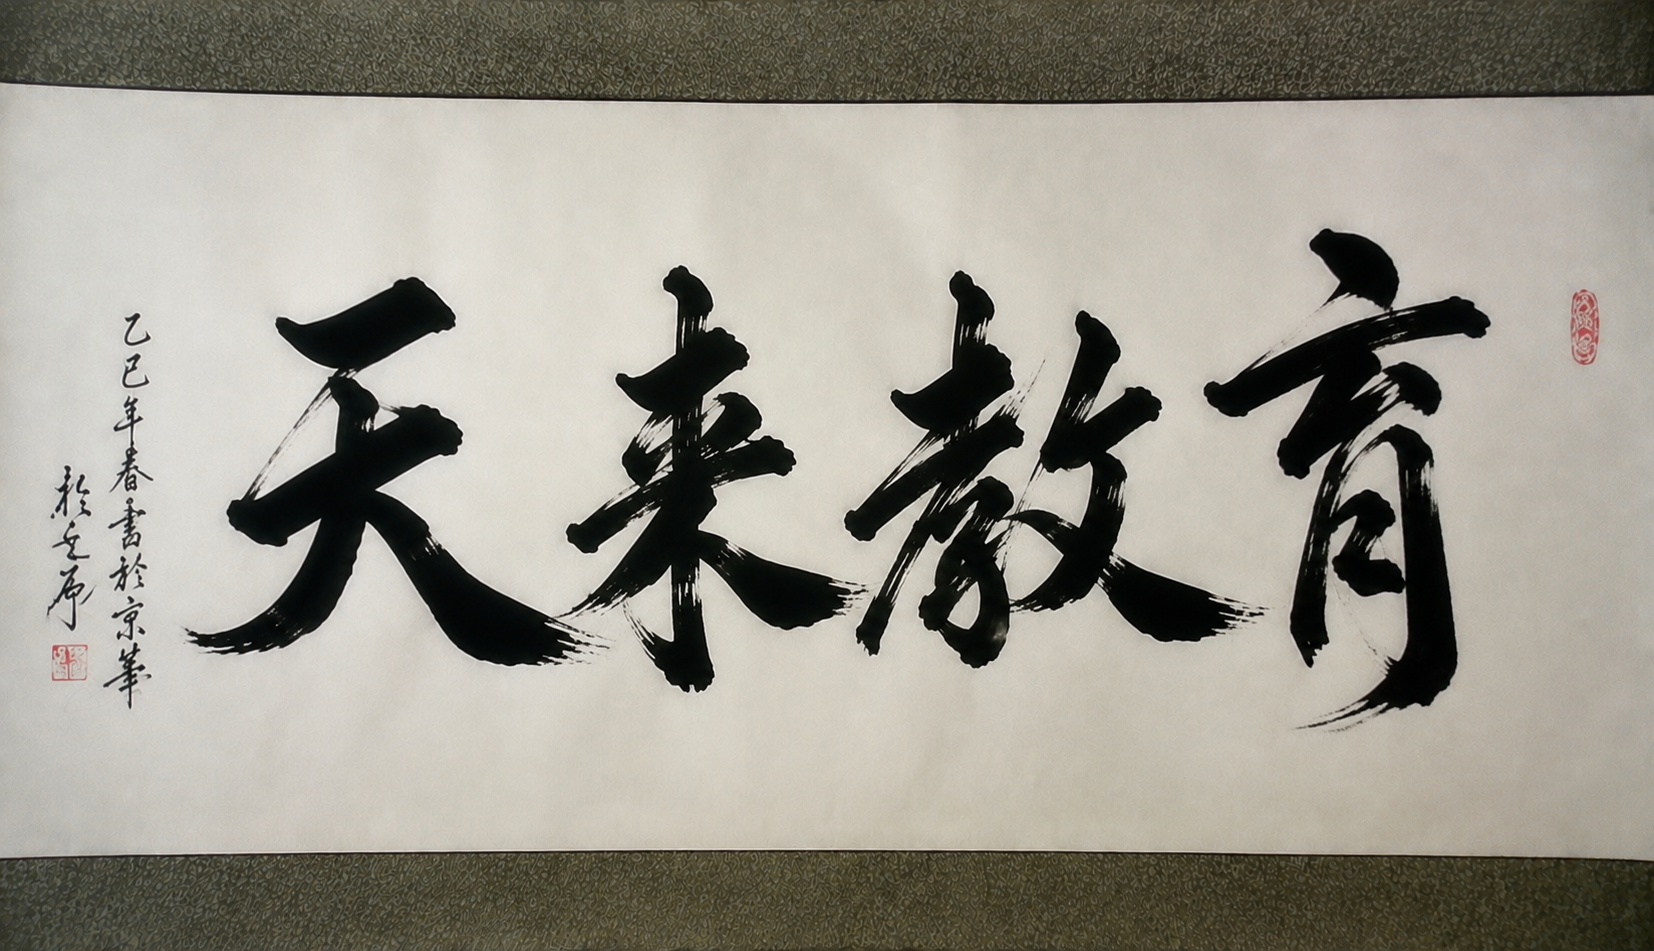 天来教育
乙巳年春書於京華